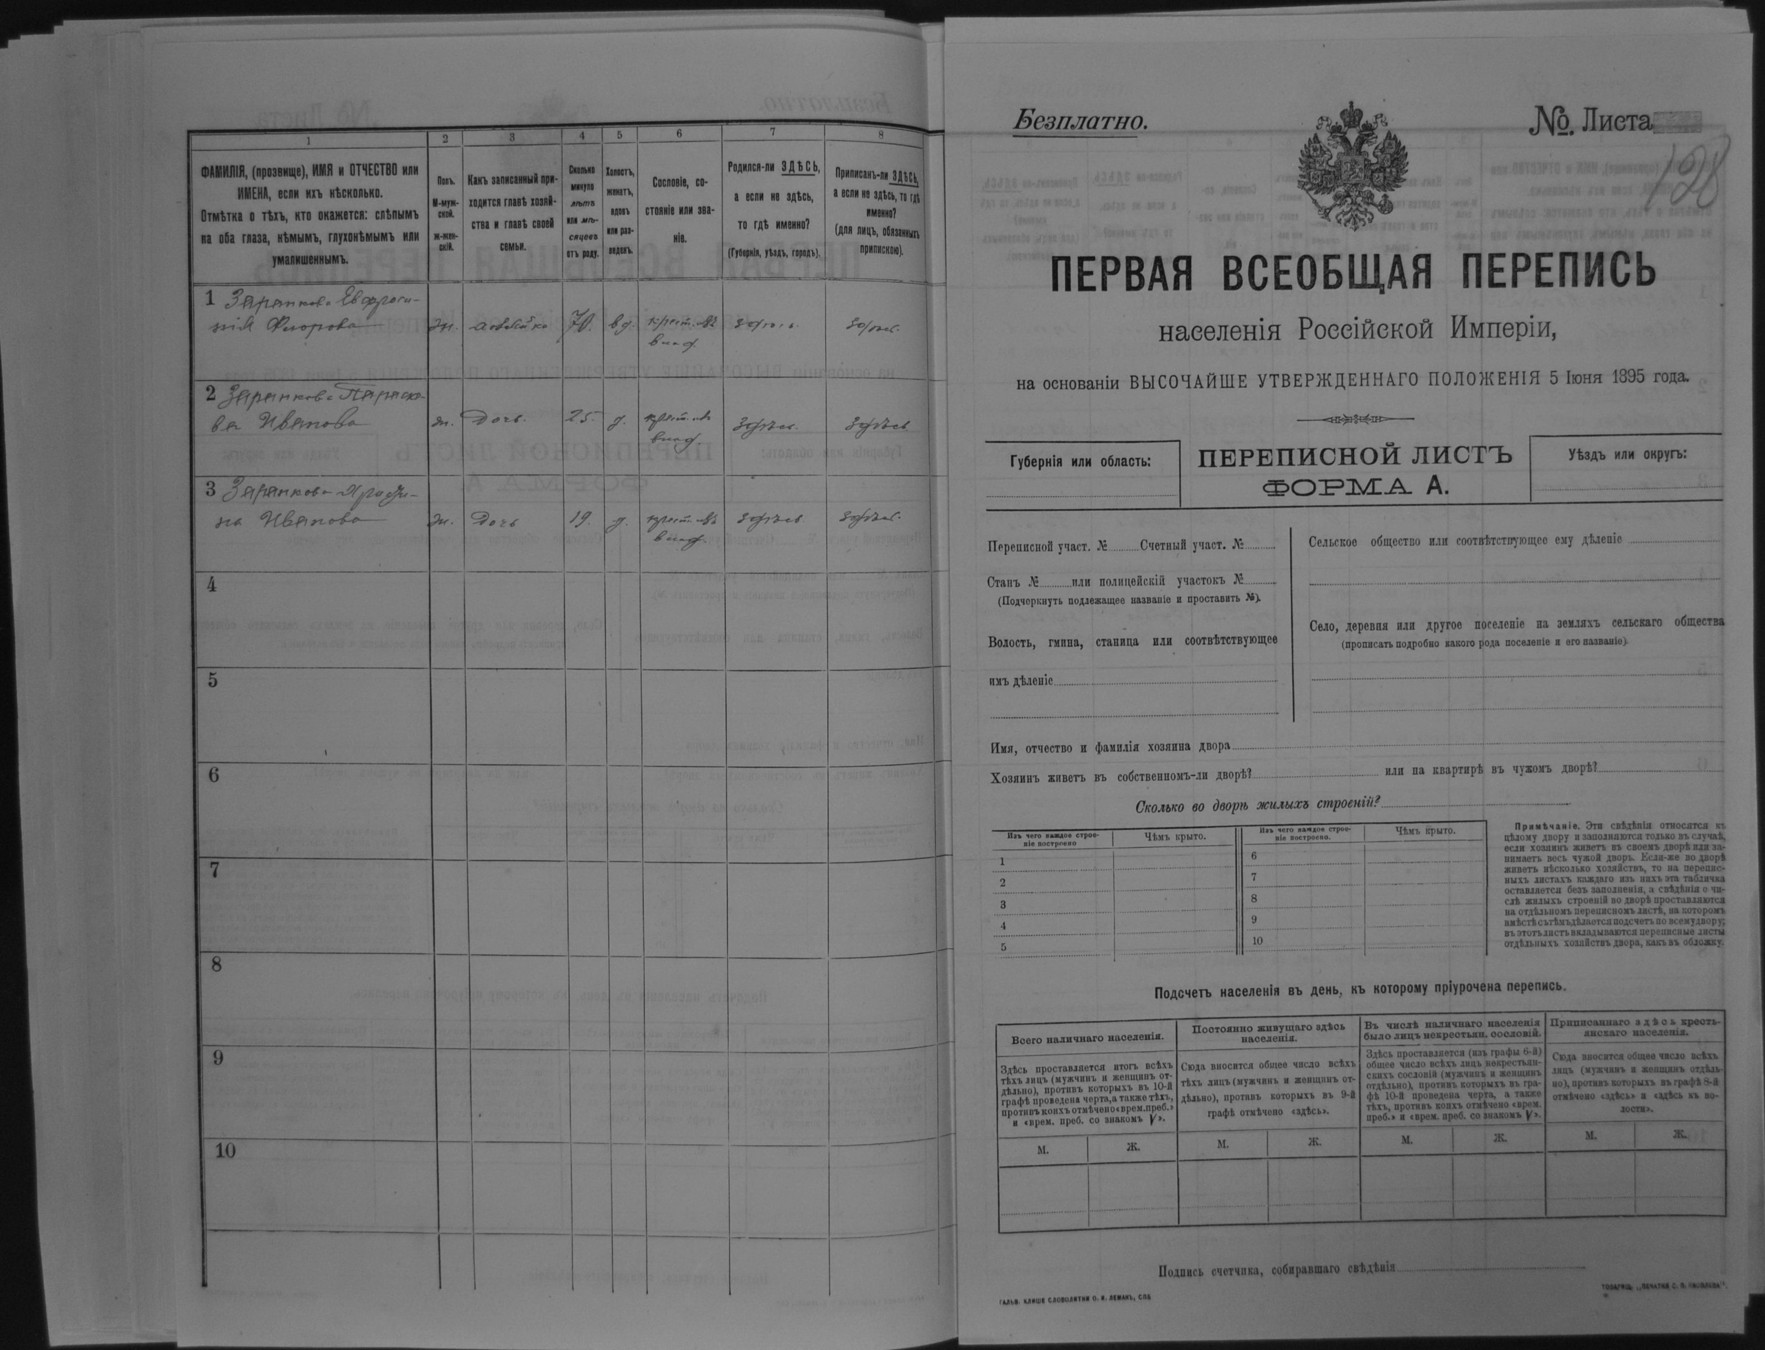 1
2
3
4
5
6
7
8
ФАМИЛІЯ, (прозвище), ИМЯ и ОТЧЕСТВО или
ИМЕНА, если ихъ нѣсколько.
Отмѣтка о тѣхъ, кто окажется: слѣпымъ
на оба глаза, нѣмымъ, глухонѣмымъ или
умалишеннымъ.
Полъ.
М-муж-
ской.
ж-жен-
скій.
Какъ записанный при-
ходится главѣ хозяй-
ства и главѣ своей
семьи.
Сколько
минуло
лѣтъ
или мѣ-
сяцевъ
отъ роду.
Холостъ,
женатъ,
вдовъ
или раз-
веденъ.
Сословіе, со-
стояніе или зва-
ніе.
Родился-ли ЗДѢСЬ,
а если не здѣсь,
то гдѣ именно?
(Губернія, уѣздъ, городъ).
Приписанъ-ли ЗДѢСЬ,
а если не здѣсь, то гдѣ
именно?
(для лицъ, обязанныхъ
припискою).
1
Евфроси-
нія Флорова
ж.
хозяйка
70.
вд.
крест. изъ
влад.
здѣсь
здѣсь.
2
Параске-
ва Иванова
ж.
Дочь.
25.
д.
крест. изъ
влад.
здѣсь.
здѣсь
3
Иванова
ж.
Дочь
19.
д.
крест. изъ
влад.
здѣсь
здѣсь.
4
5
6
7
8
9
10
Безплатно.
№. Листа
128
ПЕРВАЯ ВСЕОБЩАЯ ПЕРЕПИСЬ
населенія Россійской Имперіи,
на основаніи ВЫСОЧАЙШЕ УТВЕРЖДЕННАГО ПОЛОЖЕНІЯ 5 Іюня 1895 года.
Губернія или область:
ПЕРЕПИСНОЙ ЛИСТЪ
ФОРМА А.
Уѣздъ или округъ:
Переписной участ. № Счетный участ. №
Станъ № или полицейскій участокъ №
(Подчеркнуть подлежащее названіе и проставить №).
Волость, гмина, станица или соотвѣтствующее
имъ дѣленіе
Сельское общество или соотвѣтствующее ему дѣленіе
Село, деревня или другое поселеніе на земляхъ сельскаго общества
(прописать подробно какого рода поселеніе и его названіе).
Имя, отчество и фамилія хозяина двора
Хозяинъ живетъ въ собственномъ-ли дворѣ? или на квартирѣ въ чужомъ дворѣ?
Сколько во дворѣ жилыхъ строеній?
Изъ чего каждое строе-
ніе построено
Чѣмъ крыто.
Изъ чего каждое строе-
ніе построено.
Чѣмъ крыто.
1
2
3
4
5
6
7
8
9
10
Примѣчаніе. Эти свѣдѣнія относятся къ
цѣлому двору и заполняются только въ случаѣ,
если хозяинъ живетъ въ своемъ дворѣ или за-
нимаетъ весь чужой дворъ. Если-же во дворѣ
живетъ нѣсколько хозяйствъ, то на перепис-
ныхъ листахъ каждаго изъ нихъ эта табличка
оставляется безъ заполненія, а свѣдѣнія о чи-
слѣ жилыхъ строеній во дворѣ проставляются
на отдѣльномъ переписномъ листѣ, на которомъ
вмѣстѣ съ тѣмъ дѣлается подсчетъ по всему двору;
въ этотъ листъ вкладываются переписные листы
отдѣльныхъ хозяйствъ двора, какъ въ обложку.
Подсчетъ населенія въ день, къ которому пріурочена перепись.
Всего наличнаго населенія.
Здѣсь проставляется итогъ всѣхъ
тѣхъ лицъ (мужчинъ и женщинъ от-
дѣльно), противъ которыхъ въ 10-й
графѣ проведена черта, а также тѣхъ,
противъ коихъ отмѣчено «врем. преб.»
и «врем. преб. со знакомъ V».
Постоянно живущаго здѣсь
населенія.
Сюда вносится общее число всѣхъ
тѣхъ лицъ (мужчинъ и женщинъ от-
дѣльно), противъ которыхъ въ 9-й
графѣ отмѣчено «здѣсь».
Въ числѣ наличнаго населенія
было лицъ некрестьян. сословій.
Здѣсь проставляется (изъ графы 6-й)
общее число всѣхъ лицъ некрестьян-
скихъ сословій (мужчинъ и женщинъ
отдѣльно), противъ которыхъ въ гра-
фѣ 10-й проведена черта, а также
тѣхъ, противъ коихъ отмѣчено «врем.
преб.» и «врем. преб. со знакомъ V».
Приписаннаго здѣсь кресть-
янскаго населенія.
Сюда вносится общее число всѣхъ
лицъ (мужчинъ и женщинъ отдѣль-
но), противъ которыхъ въ графѣ 8-й
отмѣчено «здѣсь» и «здѣсь къ во-
лости».
М.
Ж.
М.
Ж.
М.
Ж.
М.
Ж.
Подпись счетчика, собиравшаго свѣдѣнія
ГАЛЬВ. КЛИШЕ СЛОВОЛИТНИ О. И. ЛЕМАНЪ, СПБ